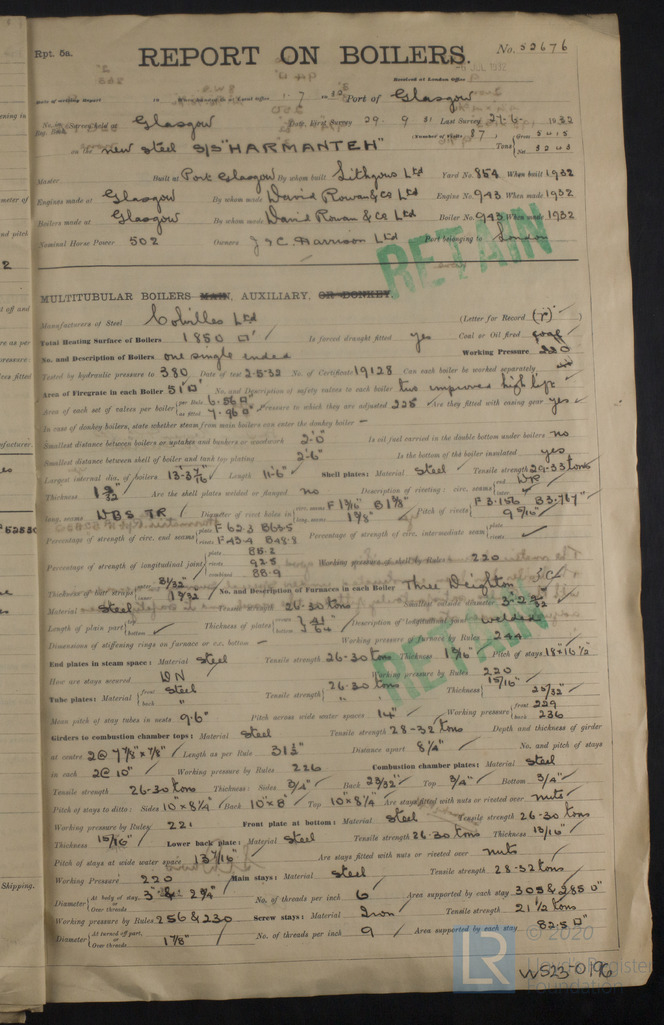 Rpt. 5a.
REPORT ON BOILERS.
No. 52676
Received at London Office
Date of writing Report 19 When handed in at Local Office 1.7 1932 Port of Glasgow
No. in Reg. Book Survey held at Glasgow Date, First Survey 29.9.31 Last Survey 27.6.1932
on the new steel S/S "HARMANTEH" (Number of Visits 87) Tons Gross Net
Master Built at Port Glasgow By whom built Lithgows Ltd Yard No. 854 When built 1932
Engines made at Glasgow By whom made David Rowan & Co Ltd Engine No. 943 When made 1932
Boilers made at Glasgow By whom made David Rowan & Co Ltd Boiler No. 943 When made 1932
Nominal Horse Power 502 Owners J & C Harrison Ltd Port belonging to London
RETAIN
MULTITUBULAR BOILERS MAIN, AUXILIARY, OR DONKEY
Manufacturers of Steel Colvilles Ltd (Letter for Record )
Total Heating Surface of Boilers 1850 □' Is forced draught fitted yes Coal or Oil fired coal
No. and Description of Boilers one single ended Working Pressure 220
Tested by hydraulic pressure to 380 Date of test 2.5.32 No. of Certificate 19128 Can each boiler be worked separately
Area of Firegrate in each Boiler 51 □' No. and Description of safety valves to each boiler two improved high lift
Area of each set of valves per boiler per Rule 6.56 □" as fitted 7.96 □" Pressure to which they are adjusted 225 Are they fitted with easing gear yes
In case of donkey boilers, state whether steam from main boilers can enter the donkey boiler –
Smallest distance between boilers or uptakes and bunkers or woodwork 2'.0" Is oil fuel carried in the double bottom under boilers no
Smallest distance between shell of boiler and tank top plating 2'.6" Is the bottom of the boiler insulated yes
Largest internal dia. of boilers 13'.3 7/16" Length 11'.6" Shell plates: Material Steel Tensile strength 29-33 tons
Thickness 1 9/32 Are the shell plates welded or flanged no Description of riveting: circ. seams end DR
long. seams DBS TR Diameter of rivet holes in circ. seams F 1 3/16" B 1 1/8" long. seams 1 3/8" Pitch of rivets F 3.156 B 3.767" 9 5/16"
Percentage of strength of circ. end seams plate F 62.3 B 65.5 rivets F 43.4 B 48.8 Percentage of strength of circ. intermediate seam plate rivets
Percentage of strength of longitudinal joint plate 85.2 rivets 92.5 combined 88.9 Working pressure of shell by Rules 220
Thickness of butt straps outer 31/32" inner 1 3/32 No. and Description of Furnaces in each Boiler Three Deighton
Material Steel Tensile strength 26-30 tons Smallest outside diameter
Length of plain part top bottom Thickness of plates crown bottom 41/64" Description of longitudinal joint welded
Dimensions of stiffening rings on furnace or c.c. bottom – Working pressure of furnace by Rules 244
End plates in steam space: Material Steel Tensile strength 26-30 tons Thickness 1 3/16" Pitch of stays 18 x 16 1/2"
How are stays secured DN Working pressure by Rules 220
Tube plates: Material front Steel back " Tensile strength 26-30 tons " Thickness 15/16" 25/32"
Mean pitch of stay tubes in nests 9.6" Pitch across wide water spaces 14" Working pressure front 229 back 236
Girders to combustion chamber tops: Material Steel Tensile strength 28-32 tons Depth and thickness of girder
at centre 2@ 7 7/8" x 7/8" Length as per Rule 31 Distance apart 8 1/4" No. and pitch of stays
in each 2@ 10" Working pressure by Rules 226 Combustion chamber plates: Material Steel
Tensile strength 26-30 tons Thickness: Sides 3/4" Back 23/32" Top 3/4" Bottom 3/4"
Pitch of stays to ditto: Sides 10" x 8 1/4" Back 10" x 8" Top 10" x 8 1/4 Are stays fitted with nuts or riveted over nuts
Working pressure by Rules 221 Front plate at bottom: Material Steel Tensile strength 26-30 tons
Thickness 15/16" Lower back plate: Material Steel Tensile strength 26-30 tons Thickness 13/16"
Pitch of stays at wide water space 13 7/16" Are stays fitted with nuts or riveted over nuts
Working Pressure 220 Main stays: Material Steel Tensile strength 28-32 tons
Diameter At body of stay, or Over threads 3" & 2 3/4" No. of threads per inch 6 Area supported by each stay 305 & 285 □"
Working pressure by Rules 256 & 230 Screw stays: Material Iron Tensile strength 21 1/2 tons
Diameter At turned off part, or Over threads 1 7/8" No. of threads per inch 9 Area supported by each stay 82.5 □"
RETAIN
Shipping.
LR © 2020
Lloyd's Register
Foundation
W523-0196